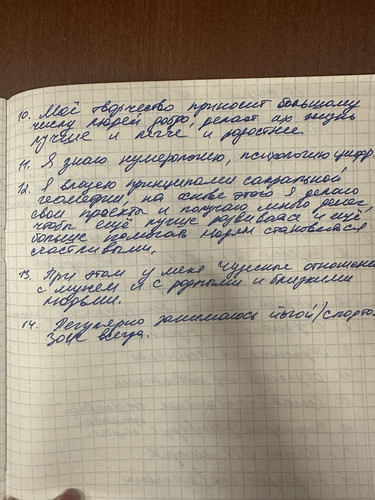 10. Моё творчество приносит большому
числу людей добро, делает их жизнь
лучше и легче и радостнее.
11. Я знаю нумерологию, психологию цифр.
12. Я владею принципами сакральной
геометрии, на основе этого я делаю
свои проекты и получаю много денег,
чтобы ещё лучше развиваться и ещё
больше помогать людям становиться
счастливыми.
13. При этом у меня чудесные отношения
с мужем и с родными и близкими
людьми.
14. Регулярно занимаюсь йогой/спортом
ЗОЖ всегда.